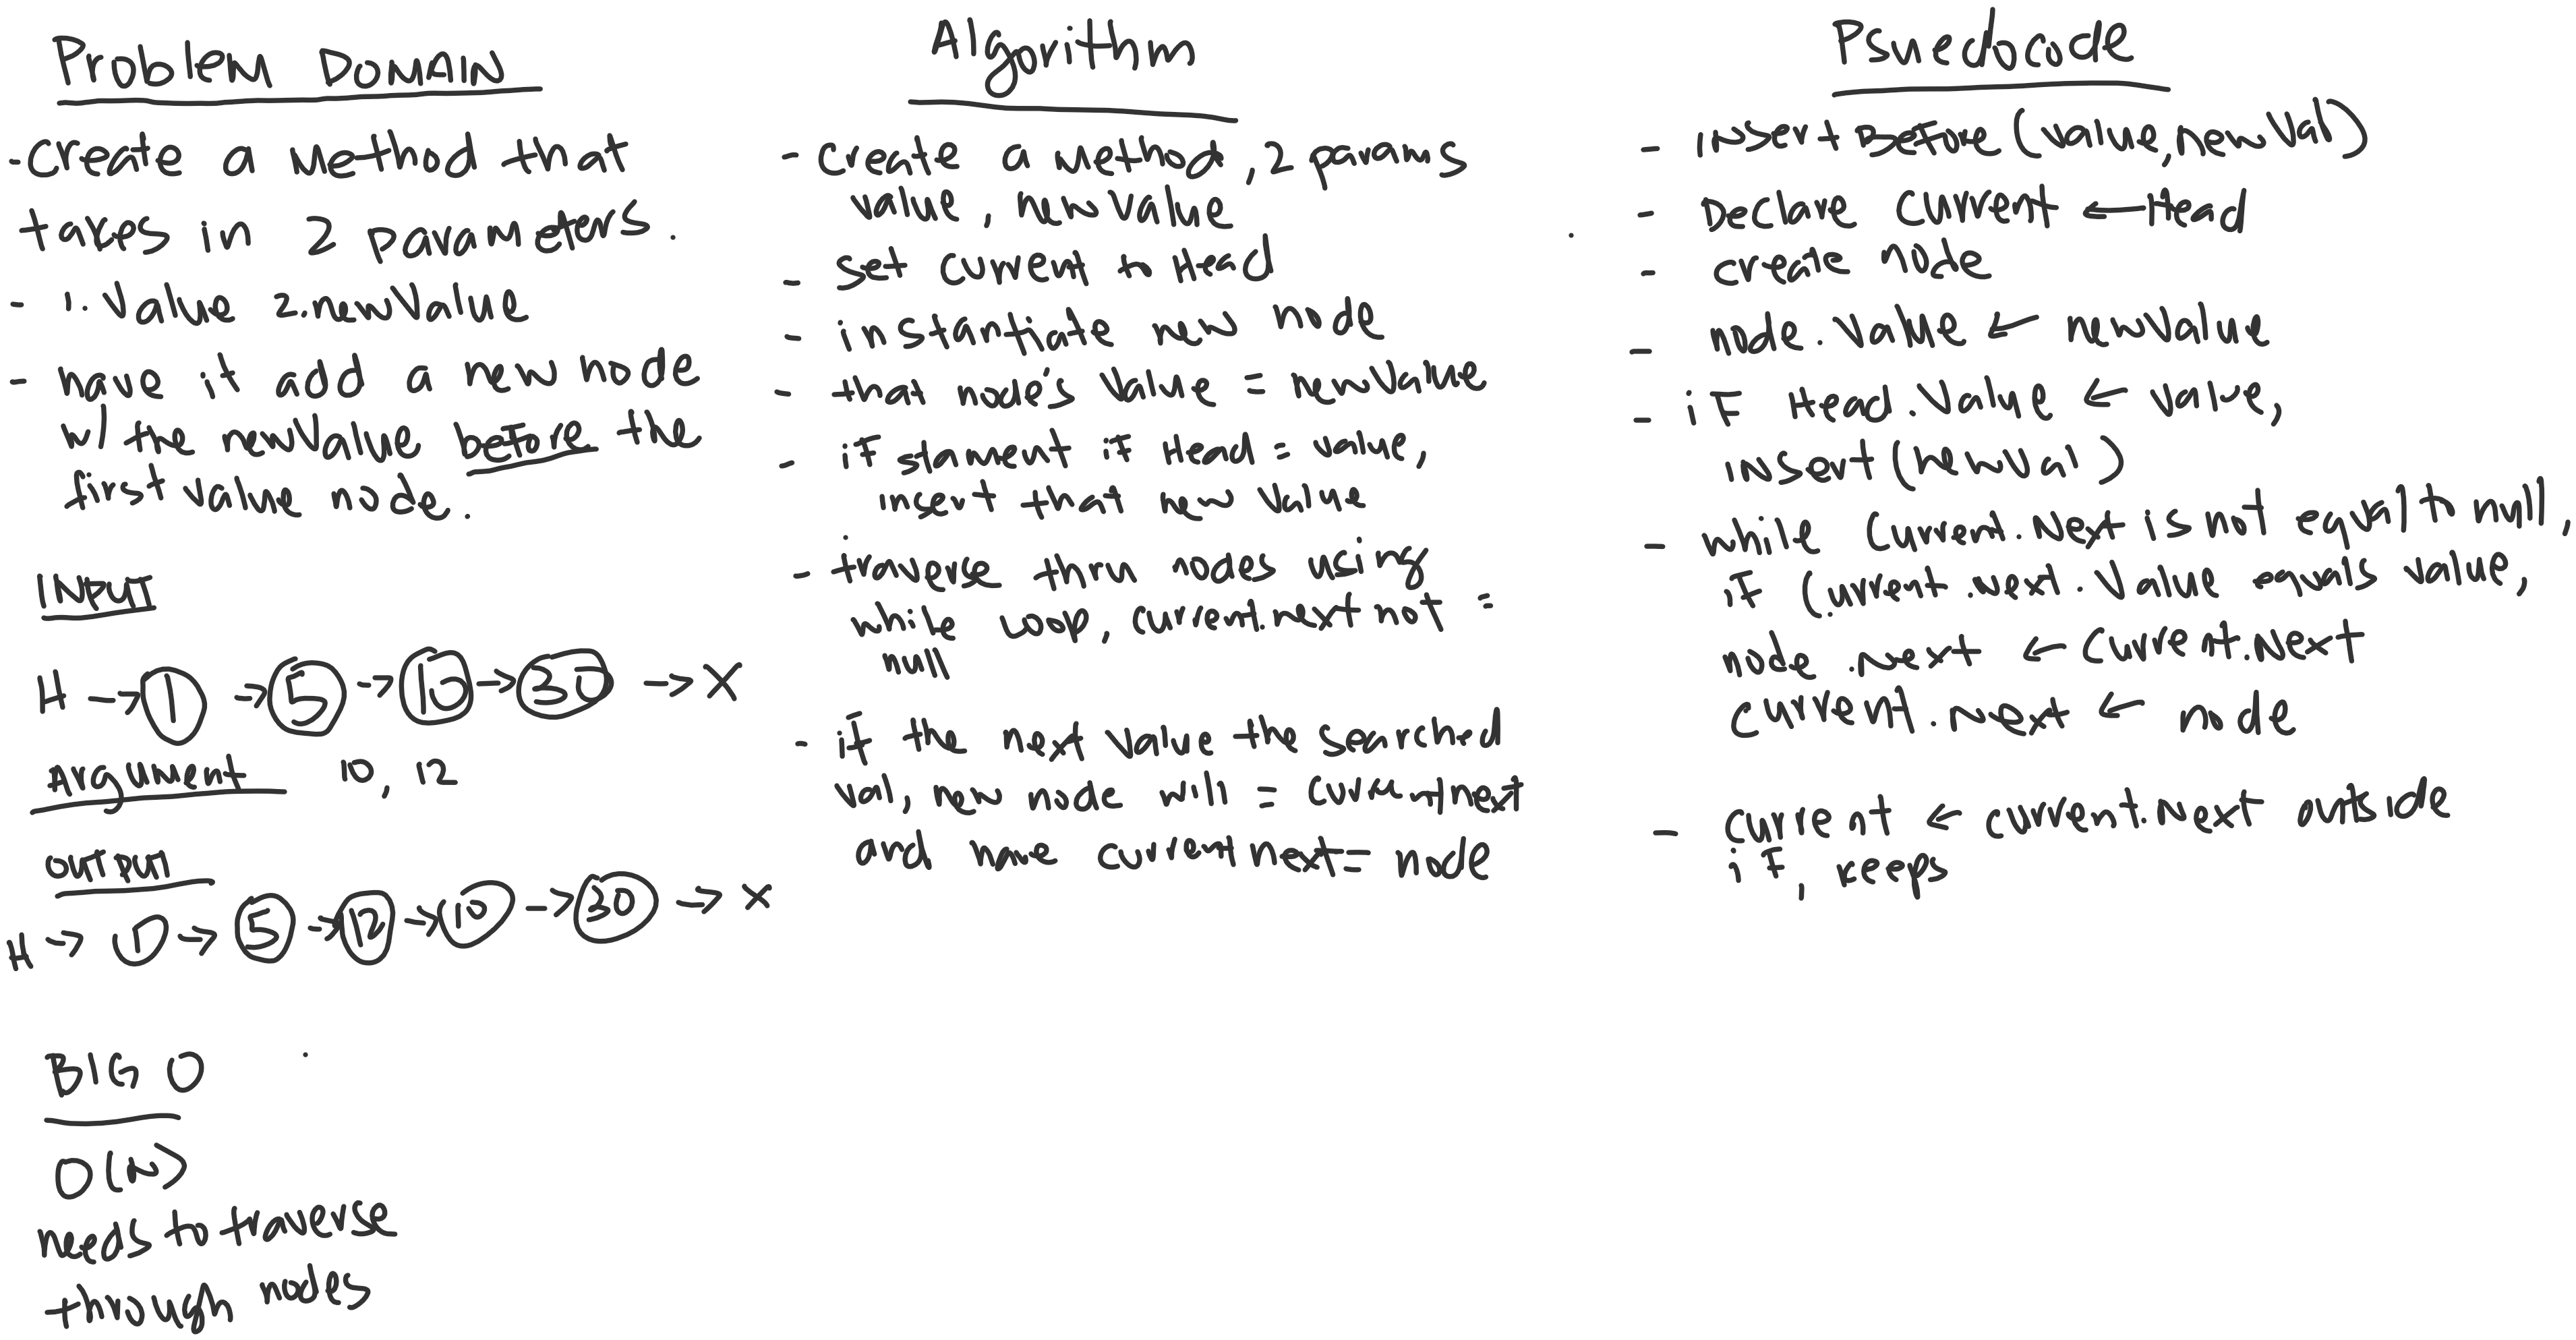 Problem DOMAIN
- Create a Method that
takes in 2 parameters.
- 1. Value 2. newValue
- have it add a new node
w/ the newValue before the
first value node.
INPUT
H → 1 → 5 → 10 → 30 → X
Argument 10, 12
OUTPUT
H → 1 → 5 → 12 → 10 → 30 → X
BIG O
O(N)
needs to traverse
through nodes
Algorithm
- Create a Method, 2 params
value, newValue
- Set current to Head
- instantiate new node
- that node's Value = newValue
- if stament if Head = value,
insert that new value
- traverse thru nodes using
while Loop, current.next not =
null
- if the next value the searched
val, new node will = current next
and have current next = node
Psuedocode
- insertBefore (value, newVal)
- Declare Current ← Head
- create node
- node.Value ← newValue
- if Head.Value ← value,
insert(newVal)
- while Current.Next is not equal to null,
if Current.next.Value equals value,
node.Next ← Current.Next
current.Next ← node
- current ← current.Next outside
if, keeps